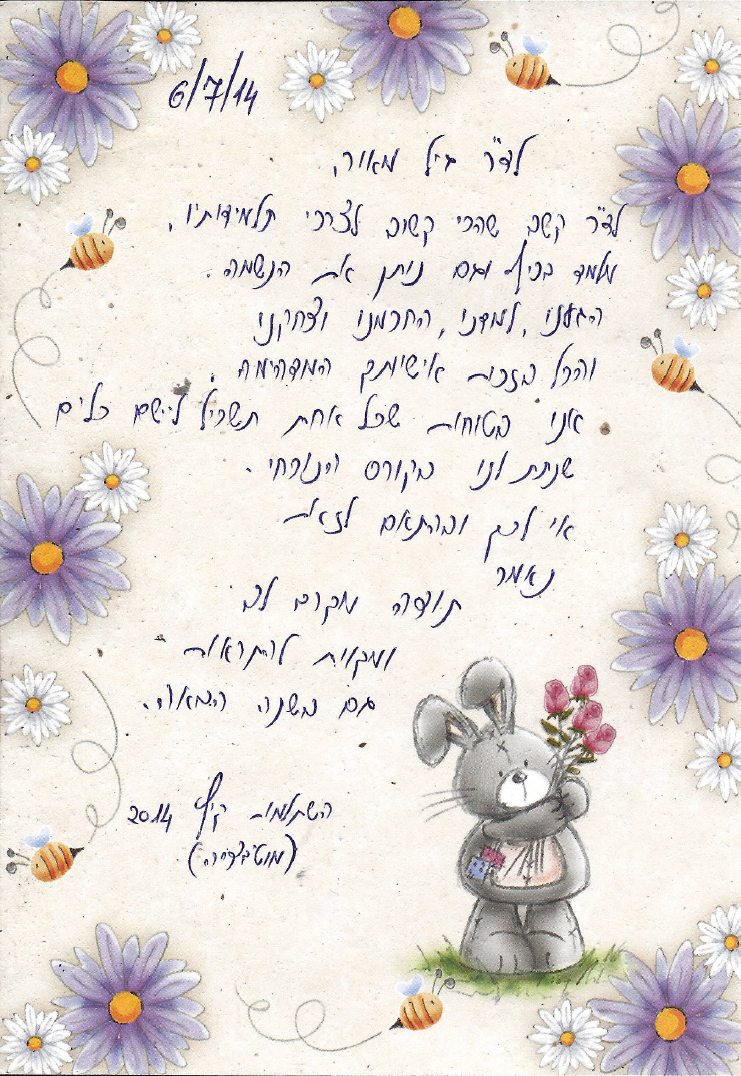 6/7/14
לד"ר גיל מאור,
לד"ר קשב שהכי קשוב לצרכי תלמידותיו,
מלמד בכיף וגם נותן את הנשמה.
הגענו, למדנו, התרמנו וצחקנו
והכל בזכות אישיותך המדהימה.
אנו בטוחות שכל אחת תשכיל ליישם כלים
שנתת לנו בקורס הינוכחי.
אי לכך ובהתאם לזאת
נאמר
תודה מקרב לב
ומקוות להתראות
גם בשנה הבאה.
השתלמות קיץ 2014
(מוטיבציה)